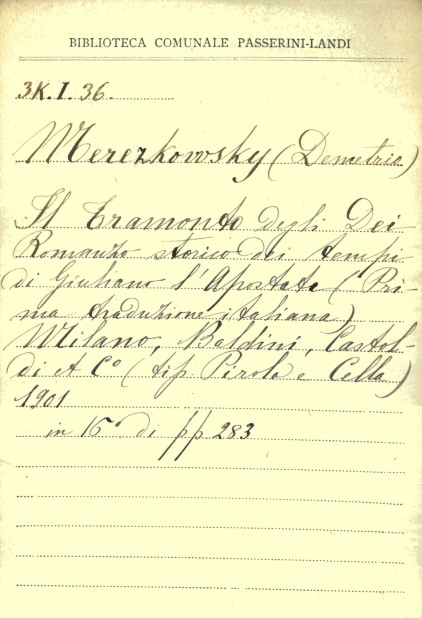 BIBLIOTECA COMUNALE PASSERINI-LANDI
3K.I.36.
Merezkovosky (Demetrio)
Il Tramonto degli Dei
Romanzo storico dei tempi
di Giuliano l'Apostata (Pri-
ma traduzione italiana)
Milano, Baldini, Castol-
di et Cº (tip. Pirola e Cella)
1901
in 16º di pp 283